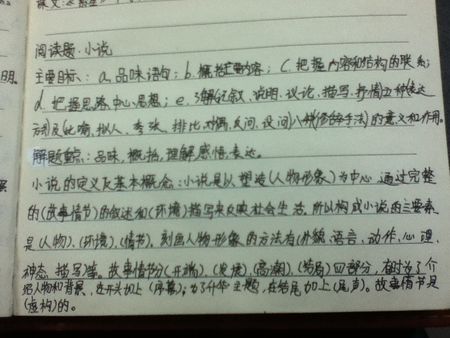 阅读题·小说
主要目标: a.品味语句; b.概括主要内容; c.把握内容和结构的联系;
d.把握思路,中心思想; e.了解(记叙、说明、议论、描写、抒情)五种(表达
方式)及(比喻、拟人、夸张、排比、对偶、反问、设问)八种(修辞手法)的意义和作用。
解题重点:品味,概括,理解感悟,表达。
小说的定义及基本概念:小说是以塑造(人物形象)为中心,通过完整
的(故事情节)的叙述和(环境)描写来反映社会生活,所以构成小说的三要素
是(人物)、(环境)、(情节)。刻画人物形象的方法有(外貌、语言、动作、心理、
神态、描写)等。故事情节分(开端)、(发展)、(高潮)、(结局)四部分,有时为了介
绍人物和背景,在开头加上(序幕);为了升华主题,在结尾加上(尾声)。故事情节是
(虚构)的。